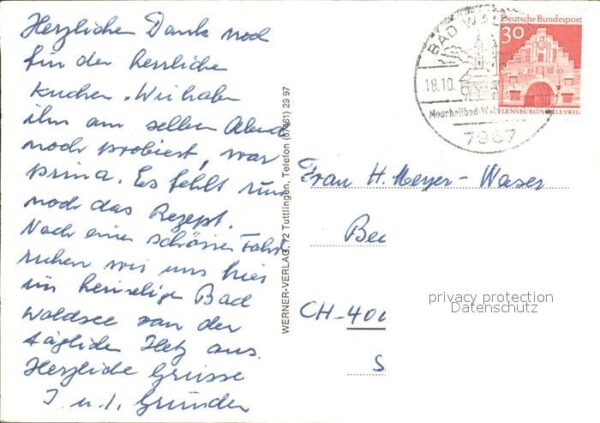 Herzlichen Dank noch
für den herrliche
Kuchen. Wir haben
ihn am selben Abend
noch probiert, war
prima. Es fehlt nun
noch das Rezept.
Nach einer schönen Fahrt
ruhen wir uns hier
im heimelige Bad
Waldsee von der
täglichen Hetz aus.
Herzliche Grüsse
J. u. J. Gründer
WERNER-VERLAG, 72 Tuttlingen, Telefon (07461) 29 97
BAD WA
18.10.
Moorheilbad
7967
Deutsche Bundespost
30
FLENSBURG/SCHLESWIG
Frau H. Meyer-Waser
CH-40
S
privacy protection
Datenschutz